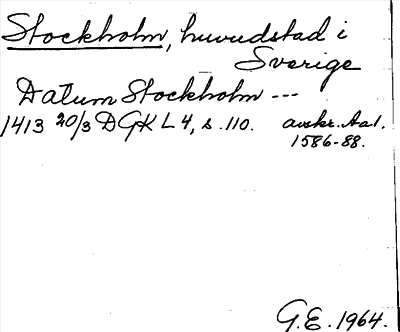 Stockholm, huvudstad i
Sverige
Datum Stockholm ---
1413 20/3 DGK L 4, s. 110. avskr. Aal.
1586-88.
G.E. 1964.